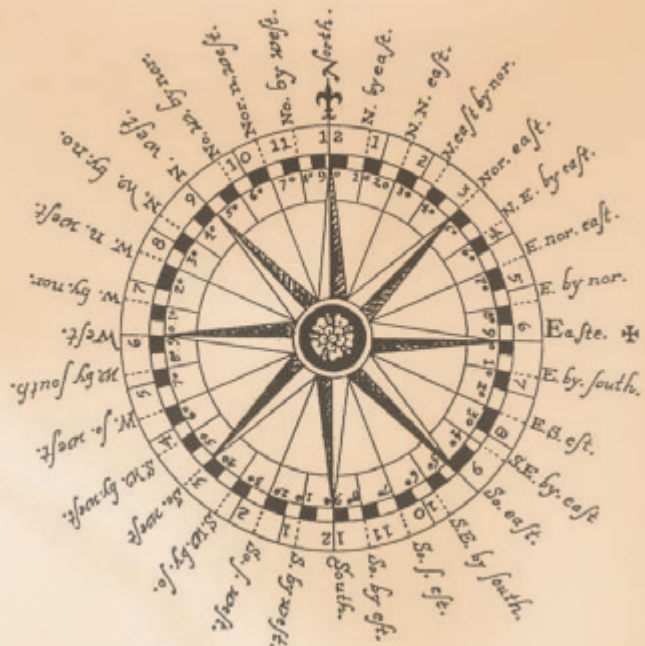 North.
N. by eaſt.
N. N. eaſt.
N. eaſt by nor.
Nor. eaſt.
N. E. by eaſt.
E. nor. eaſt.
E. by nor.
Eaſte.
E. by. ſouth.
E. S. eſt.
S. E. by. eaſt
So. eaſt.
S. E. by ſouth.
So. ſ. eſt.
So. by eſt.
South.
S. by weſt.
So. ſ. weſt.
S. W. by. ſo.
So. weſt
S. W. by. weſt.
W. ſo. weſt.
W. by ſouth.
Weſt.
W. by. nor.
W. n. weſt.
N. W. by. no.
N. weſt.
No. W. by. nor.
Nor. n. weſt.
No. by weſt.
12
1
2
3
4
5
6
7
8
9
10
11
12
1
2
3
4
5
6
7
8
9
10
11